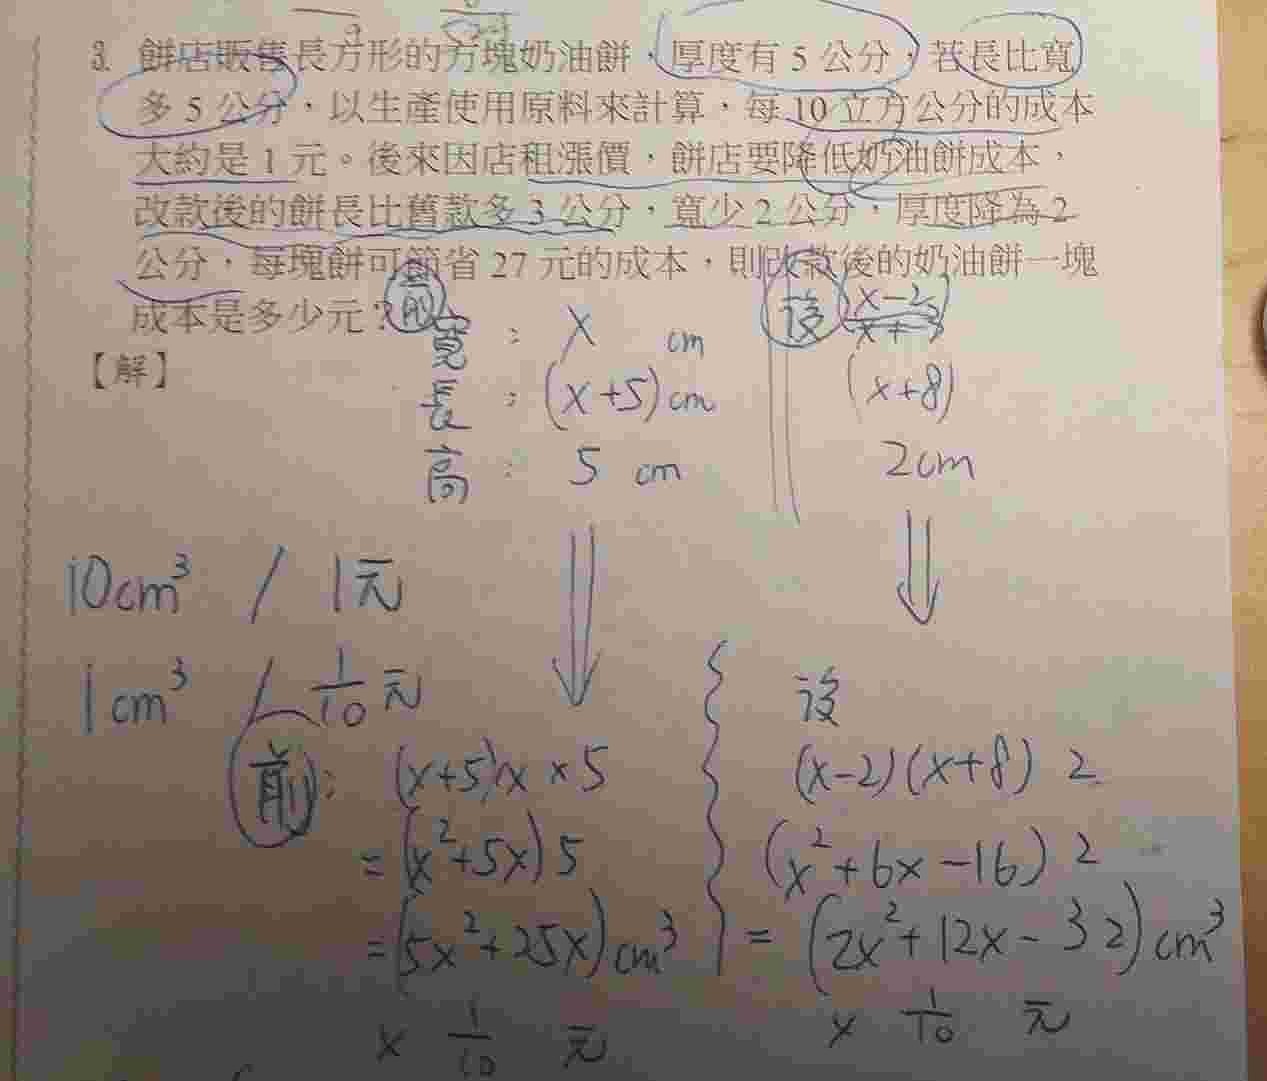 3. 餅店販售長方形的方塊奶油餅，厚度有 5 公分，若長比寬
多 5 公分，以生產使用原料來計算，每 10 立方公分的成本
大約是 1 元。後來因店租漲價，餅店要降低奶油餅成本，
改款後的餅長比舊款多 3 公分，寬少 2 公分，厚度降為 2
公分，每塊餅可節省 27 元的成本，則改款後的奶油餅一塊
成本是多少元？
【解】
前 後
寬 : x cm (x-2)
長 : (x+5)cm (x+8)
高 : 5 cm 2cm
10cm³ / 1元
1cm³ / 1/10 元
後
前: (x+5)x×5 (x-2)(x+8) 2
=(x²+5x)5 (x²+6x-16) 2
=(5x²+25x)cm³ =(2x²+12x-32)cm³
× 1/10 元 × 1/10 元